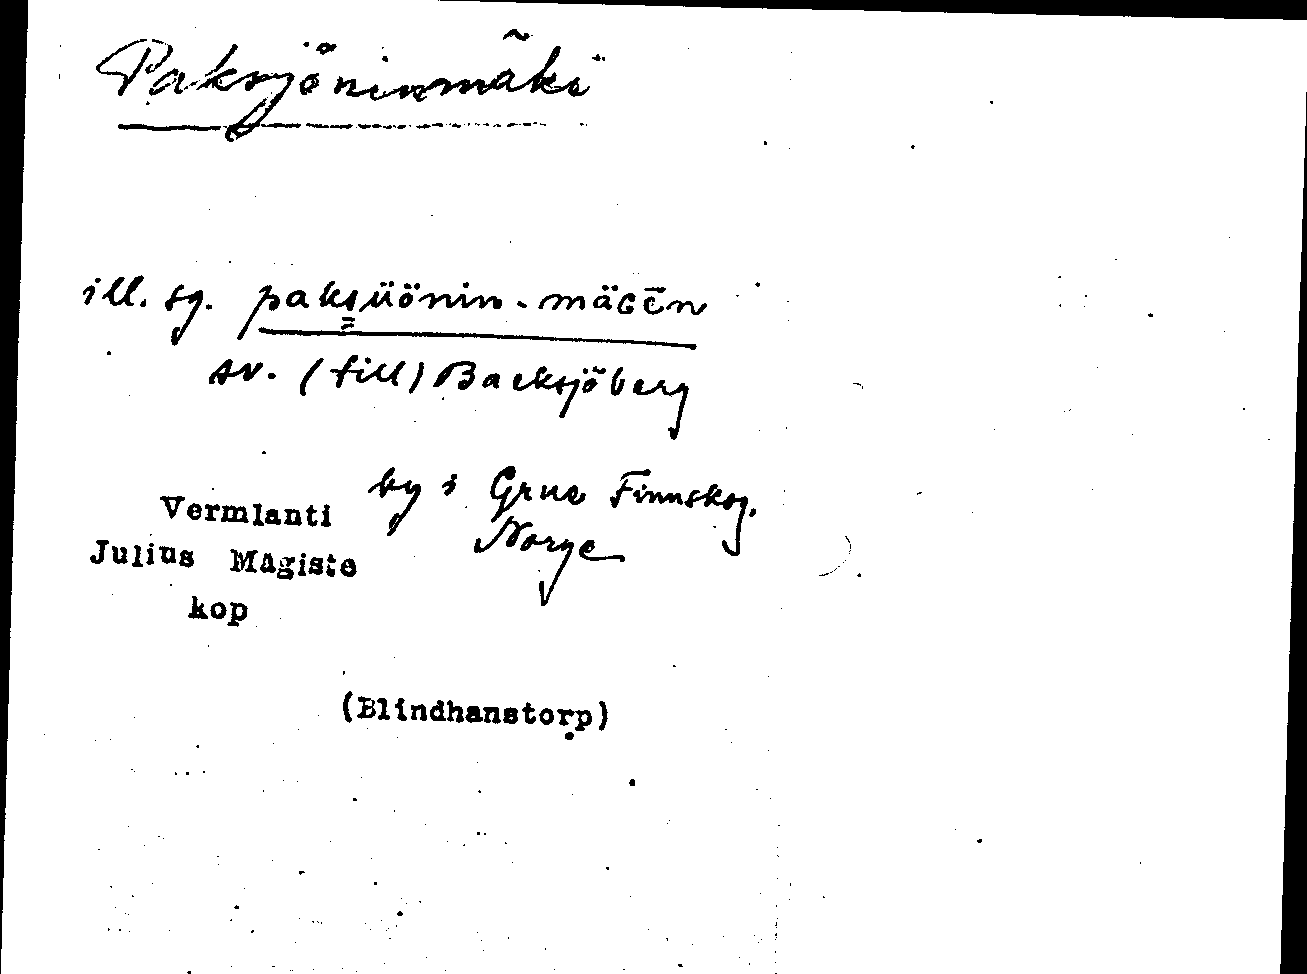 Paksjöninmäki
ill. sg. paksüönin-mäGēn
sv. (till) Backsjöberg
by i Grue Finnskog,
Norge
Vermlanti
Julius Mägiste
kop
(Blindhanstorp)